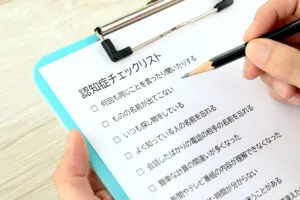 認知症チェックリスト
□ 何回も同じことを言ったり聞いたりする
□ ものの名前が出てこない
□ いつも探し物をしている
□ よく知っている人の名前を忘れる
□ 会話したばかりの電話の相手の名前を忘れる
□ 簡単な計算の間違いが多くなった
□ 新聞やテレビ番組の内容が理解できなくなった
時間が分からない
うことがある